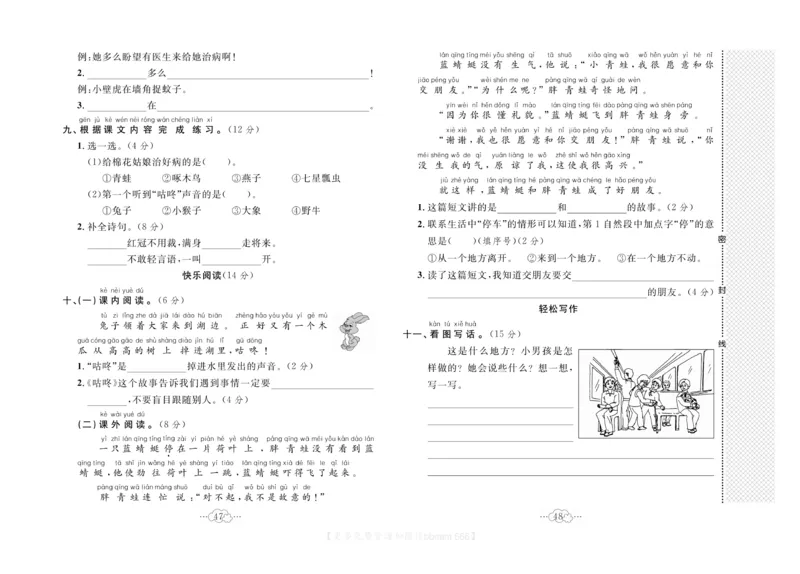 例:她多么盼望有医生来给她治病啊!
2.____________多么________________________________________!
例:小壁虎在墙角捉蚊子。
3.____________在__________________________________________。
gēn jù kè wén nèi róng wán chéng liàn xí
九、根据课文内容 完 成 练习。(12 分)
1.选一选。(4 分)
(1)给棉花姑娘治好病的是(    )。
①青蛙 ②啄木鸟 ③燕子 ④七星瓢虫
(2)第一个听到“咕咚”声音的是(    )。
①兔子 ②小猴子 ③大象 ④野牛
2.补全诗句。(8 分)
________红冠不用裁,满身________走将来。
________不敢轻言语,一叫____________开。
快乐阅读(14 分)
kè nèi yuè dú
十、(一)课内阅读。(6 分)
tù zi lǐng zhe dà jiā lái dào hú biān zhèng hǎo yòu yǒu yí gè mù
兔子 领着大家来到 湖边 。 正 好又有一个木
guā cóng gāo gāo de shù shàng diào jìn hú lǐ gū dōng
瓜 从 高高的树 上 掉进湖里,咕 咚!
1.“咕咚”是____________掉进水里发出的声音。(2 分)
2.《咕咚》这个故事告诉我们遇到事情一定要____________________
________,不要盲目跟随别人。(4 分)
kè wài yuè dú
(二)课外阅读。(8 分)
yì zhī lán qīng tíng tíng zài yí piàn hé yè shàng pàng qīng wā méi yǒu kàn dào lán
一只蓝 蜻 蜓 停在一片 荷叶 上 ,胖 青 蛙没 有看 到 蓝
qīng tíng tā shǐ jìn wǎng hé yè shàng yí tiào lán qīng tíng xià de fēi le qǐ lái
蜻 蜓,他使劲 往 荷叶 上 一跳,蓝 蜻 蜓 吓得飞了起来。
pàng qīng wā lián máng shuō duì bù qǐ wǒ bú shì gù yì de
胖 青 蛙连 忙 说:“对不起,我不是故意的!”
47
lán qīng tíng méi yǒu shēng qì tā shuō xiǎo qīng wā wǒ hěn yuàn yì hé nǐ
蓝 蜻 蜓 没 有 生 气,他 说:“小 青 蛙,我 很 愿 意 和 你
jiāo péng yǒu wèi shén me ne pàng qīng wā qí guài de wèn
交 朋 友。”“为 什 么 呢?”胖 青 蛙奇 怪 地 问。
yīn wèi nǐ hěn dǒng lǐ mào lán qīng tíng fēi dào pàng qīng wā shēn páng
“因为你 很 懂 礼貌 。”蓝 蜻 蜓飞 到 胖 青 蛙 身 旁 。
xiè xiè wǒ yě hěn yuàn yì hé nǐ jiāo péng yǒu pàng qīng wā shuō nǐ
“谢谢,我 也 很 愿 意 和 你 交 朋 友!”胖 青 蛙 说,“你
méi shēng wǒ de qì yuán liàng le wǒ zhè shǐ wǒ hěn gāo xìng
没 生 我 的 气, 原 谅 了 我,这 使 我 很 高 兴 。”
jiù zhè yàng lán qīng tíng hé pàng qīng wā chéng le hǎo péng yǒu
就 这 样 ,蓝 蜻 蜓 和 胖 青 蛙 成 了 好 朋 友。
1.这篇短文讲的是____________和____________的故事。(2 分)
2.联系生活中“停车”的情形可以知道,第 1 自然段中加点字“停”的意
思是(    )(填序号)(2 分)
①从一个地方离开。 ②来到一个地方。 ③在一个地方不动。
3.读了这篇短文,我知道交朋友要交____________________________
____________________________________________的朋友。(4 分)
轻松写作
kàn tú xiě huà
十一、看图写话。(15 分)
这是什么地方?小男孩是怎
样做的?她会说些什么?想一想,
写一写。
48
密
封
线